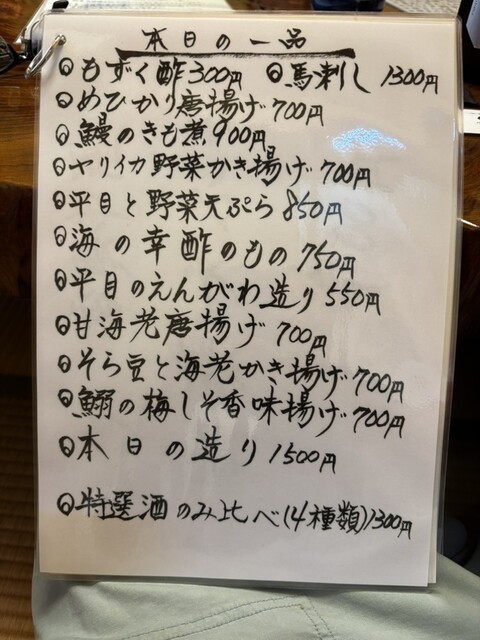 本日の一品
◎もずく酢300円 ◎馬刺し 1300円
◎めひかり唐揚げ700円
◎鰻のきも煮900円
◎ヤリイカ野菜かき揚げ700円
◎平目と野菜天ぷら850円
◎海の幸酢のもの750円
◎平目のえんがわ造り550円
◎甘海老唐揚げ700円
◎そら豆と海老かき揚げ700円
◎鰯の梅しそ香味揚げ700円
◎本日の造り1500円
◎特選酒のみ比べ(4種類)1300円